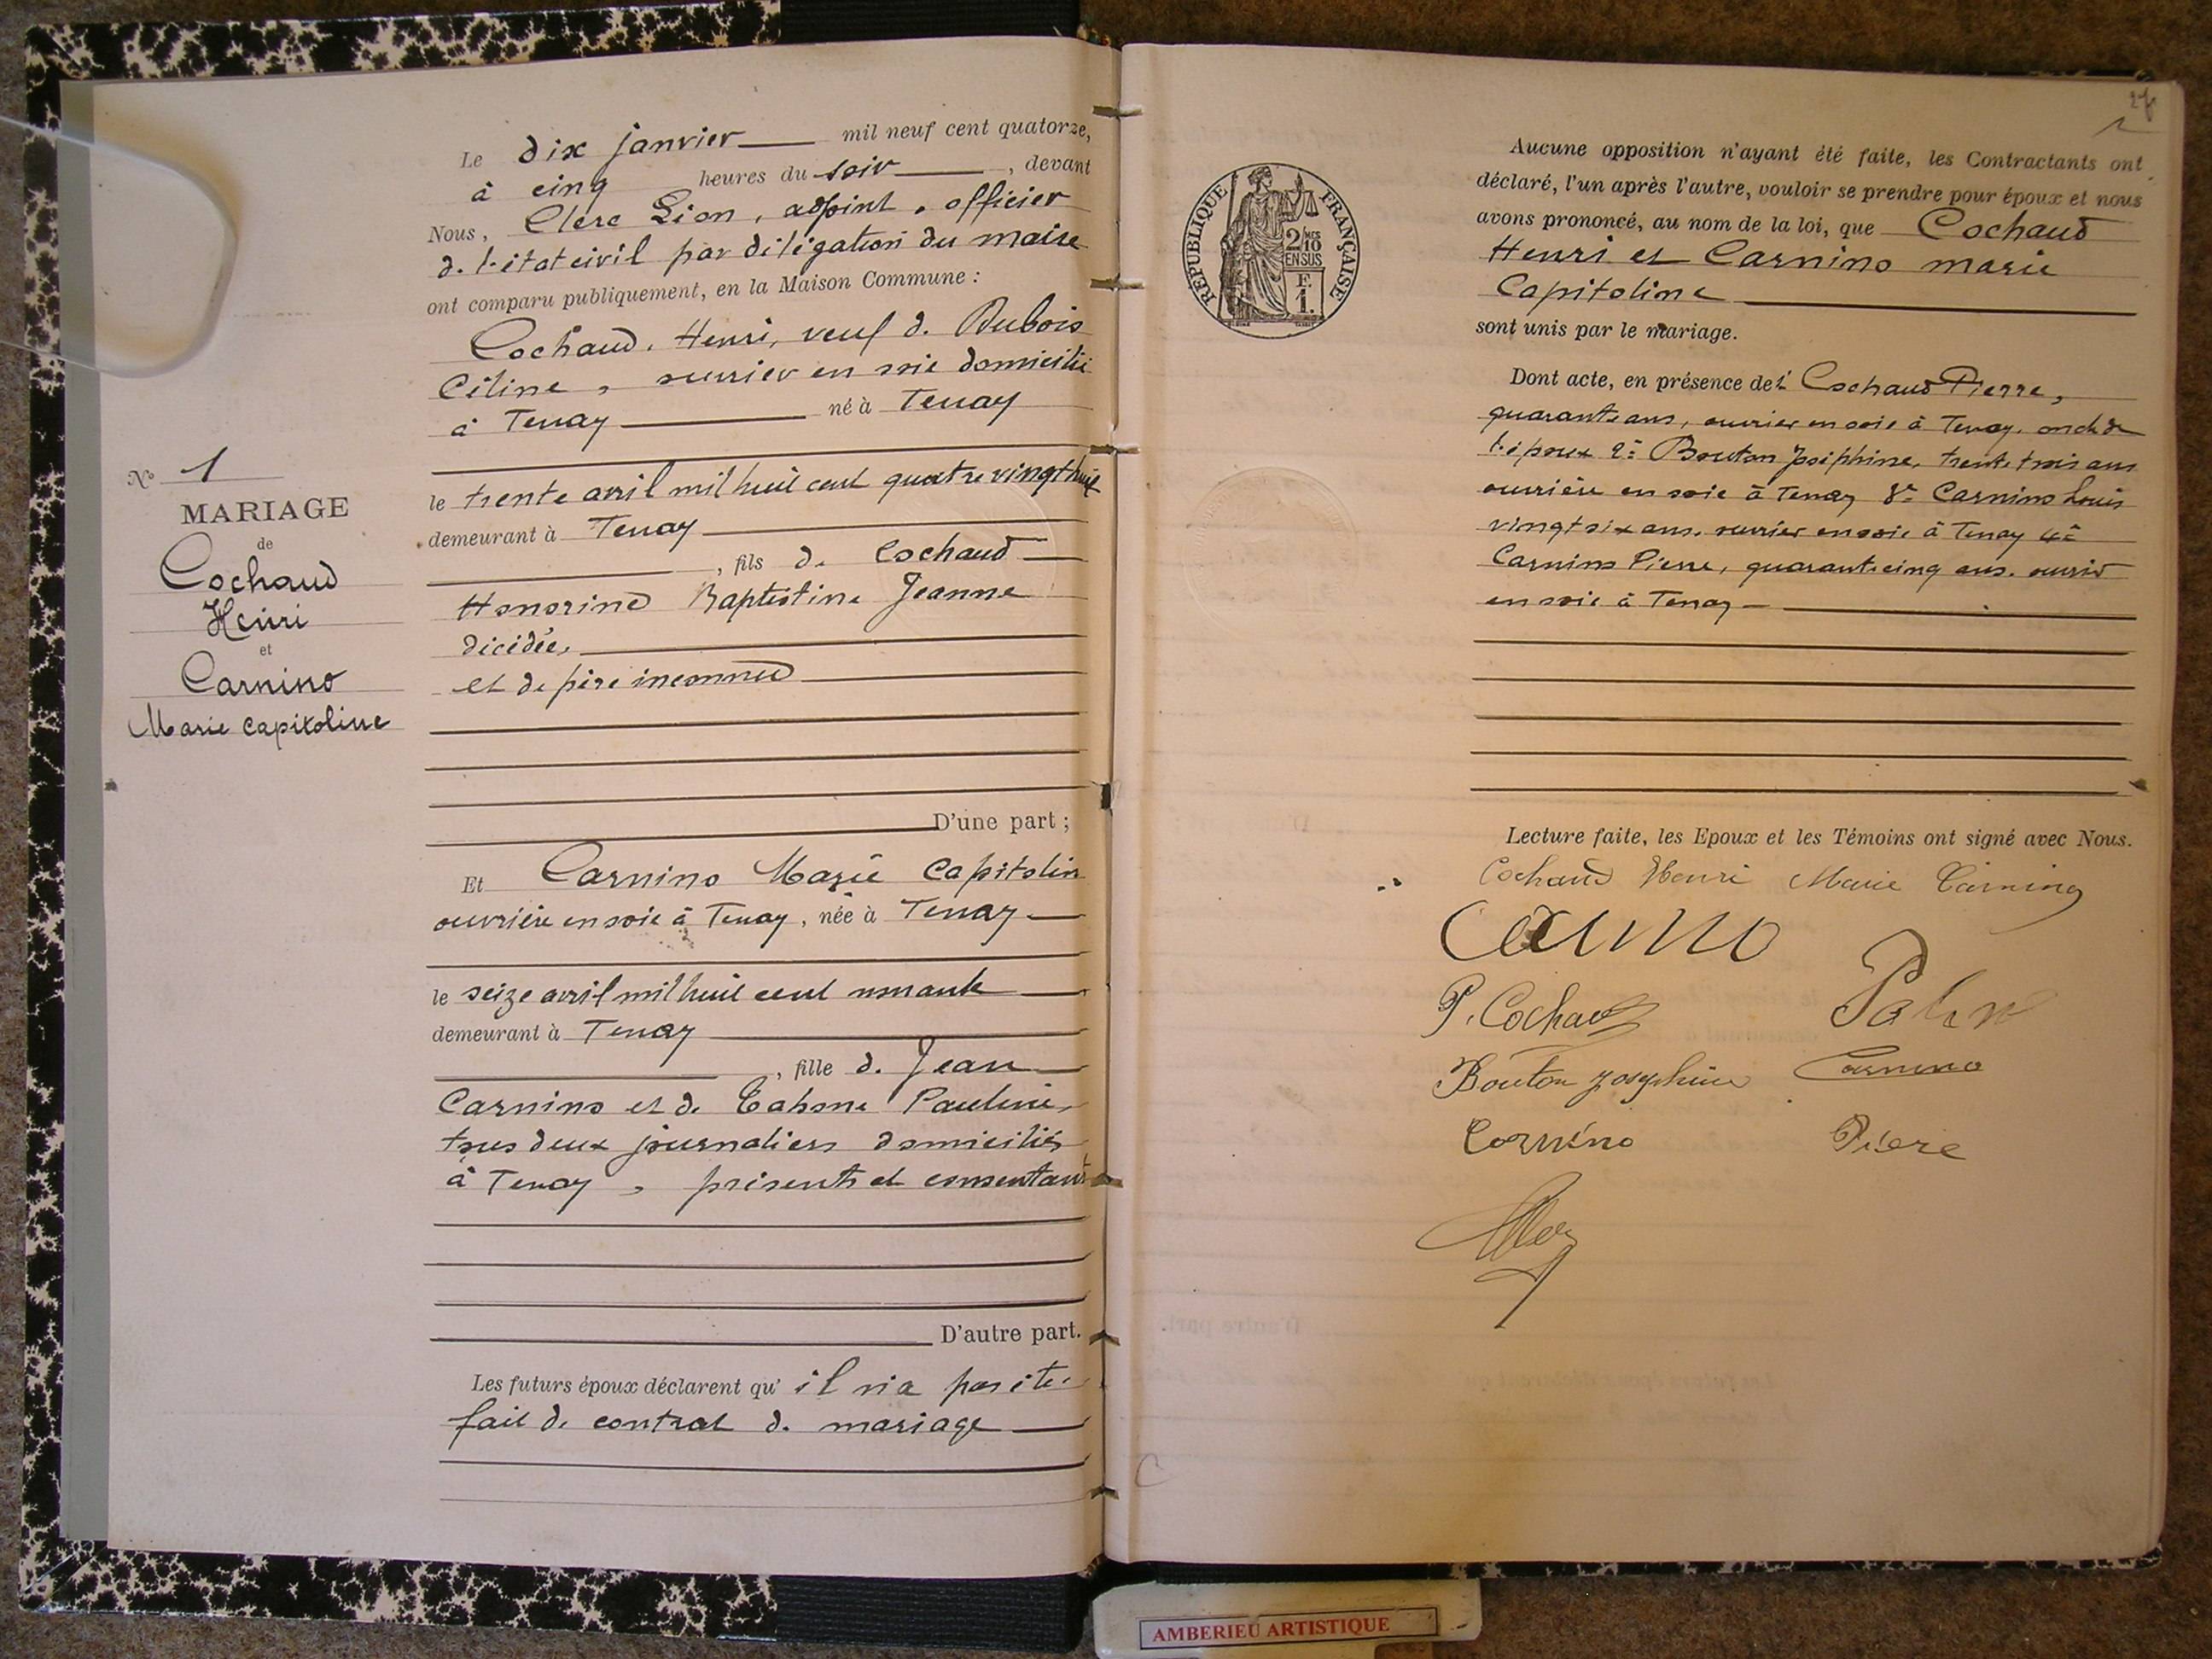 Le dix janvier mil neuf cent quatorze,
à cinq heures du soir, devant
Nous, Clerc Léon, adjoint, officier
de l'état civil par délégation du maire
ont comparu publiquement, en la Maison Commune :
Cochaud, Henri, veuf de Dubois
Céline, ouvrier en soie domicilié
à Tenay né à Tenay
le trente avril mil huit cent quatre vingt huit
demeurant à Tenay
, fils de Cochaud
Honorine Baptistine Jeanne
décédée,
et de père inconnu
D'une part ;
N° 1
MARIAGE
de
Cochaud
Henri
et
Carnino
Marie Capitoline
Et Carnino Marie Capitolin
ouvrière en soie à Tenay, née à Tenay
le seize avril mil huit cent nonante
demeurant à Tenay
, fille de Jean
Carnino et de Pauline,
tous deux journaliers domiciliés
à Tenay, présents et consentants
D'autre part.
Les futurs époux déclarent qu'il n'a pas été
fait de contrat de mariage
Aucune opposition n'ayant été faite, les Contractants ont
déclaré, l'un après l'autre, vouloir se prendre pour époux et nous
avons prononcé, au nom de la loi, que Cochaud
Henri et Carnino marie
Capitoline
sont unis par le mariage.
Dont acte, en présence de 1° Cochaud Pierre,
quarante ans, ouvrier en soie à Tenay, oncle de
l'époux 2° Bouton Joséphine, trente trois ans
ouvrière en soie à Tenay 3° Carnino Louis
vingt six ans, ouvrier en soie à Tenay 4°
Carnino Pierre, quarante cinq ans, ouvrier
en soie à Tenay
Lecture faite, les Epoux et les Témoins ont signé avec Nous.
Cochaud Henri Marie Carnino
P. Cochaud
Bouton Josephine Carnino
Cornino Piere
RÉPUBLIQUE FRANÇAISE
2/10 EN SUS
F.
1.
AMBERIEU ARTISTIQUE